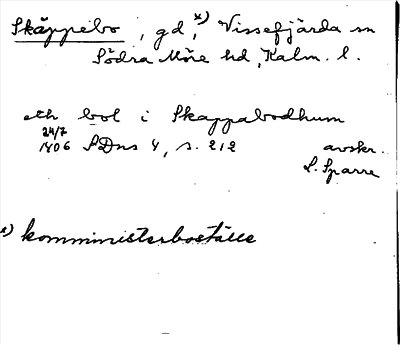 Skäppebo, gd,*) Vissefjärda sn
Södra Möre hd, Kalm. l.
eth bol i Skappabodhum
24/7
1406 SDns 4, s. 212 avskr.
L. Sparre
*) komministerboställe